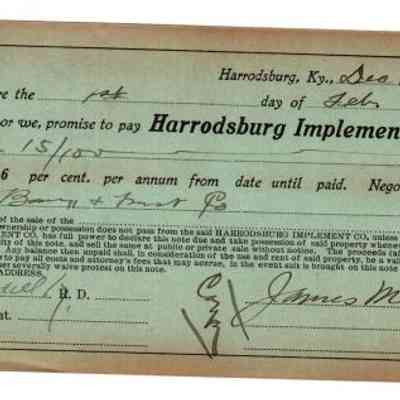 Harrodsburg, Ky., Dec
re the 1st day of Feb
or we, promise to pay Harrodsburg Implemen
15/100
6 per cent. per annum from date until paid. Nego
Bank & Trust Co
of the sale of the
ownership or possession does not pass from the said HARRODSBURG IMPLEMENT CO., unless
MENT CO. has full power to declare this note due and take possession of said property whene
ity of this note, and sell the same at public or private sale without notice. The proceeds
Any balance then unpaid shall, in consideration of the use and rent of said property, be a val
to pay all costs and attorney's fees that may accrue, in the event suit is brought on this note
er severally waive protest on this note.
ADDRESS.
R. D.
nt.
James M